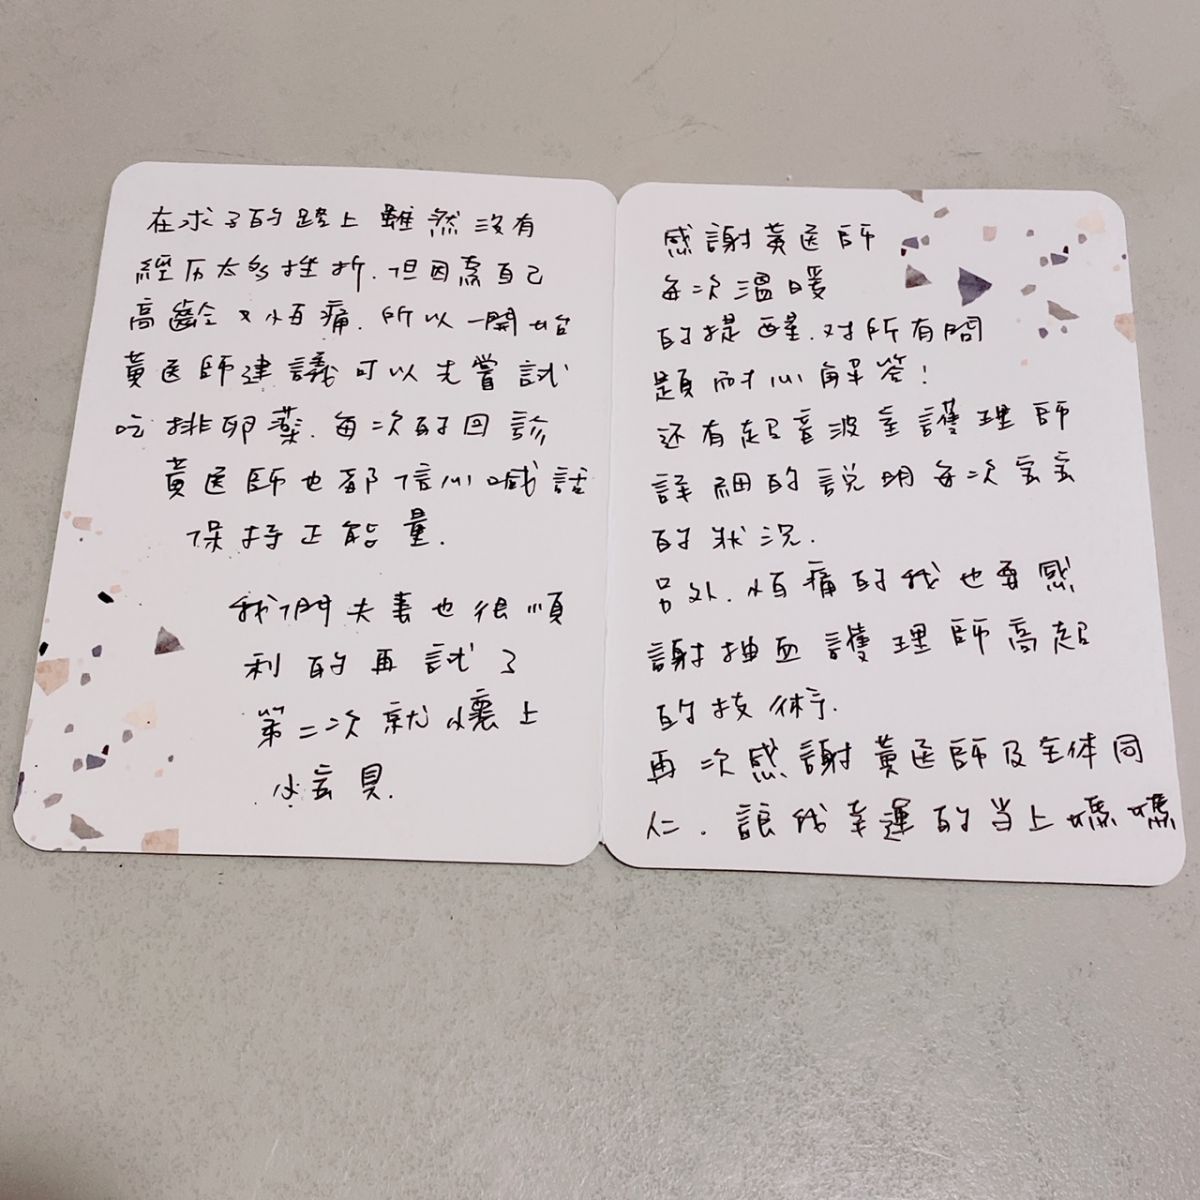 在求子的路上雖然沒有
經历太多挫折.但因為自己
高齡又怕痛.所以一開始
黃医師建議可以先嘗試
吃排卵藥.每次的回診
黃医師也都信心喊話
保持正能量.
我們夫妻也很順
利的再試了
第二次就懷上
小宝貝.
感謝黃医師
每次溫暖
的提醒.对所有問
題耐心解答!
还有超音波室護理師
詳細的說明每次宝宝
的狀況.
另外.怕痛的我也要感
謝抽血護理師高超
的技術.
再次感謝黃医師及全体同
仁.讓我幸運的当上媽媽